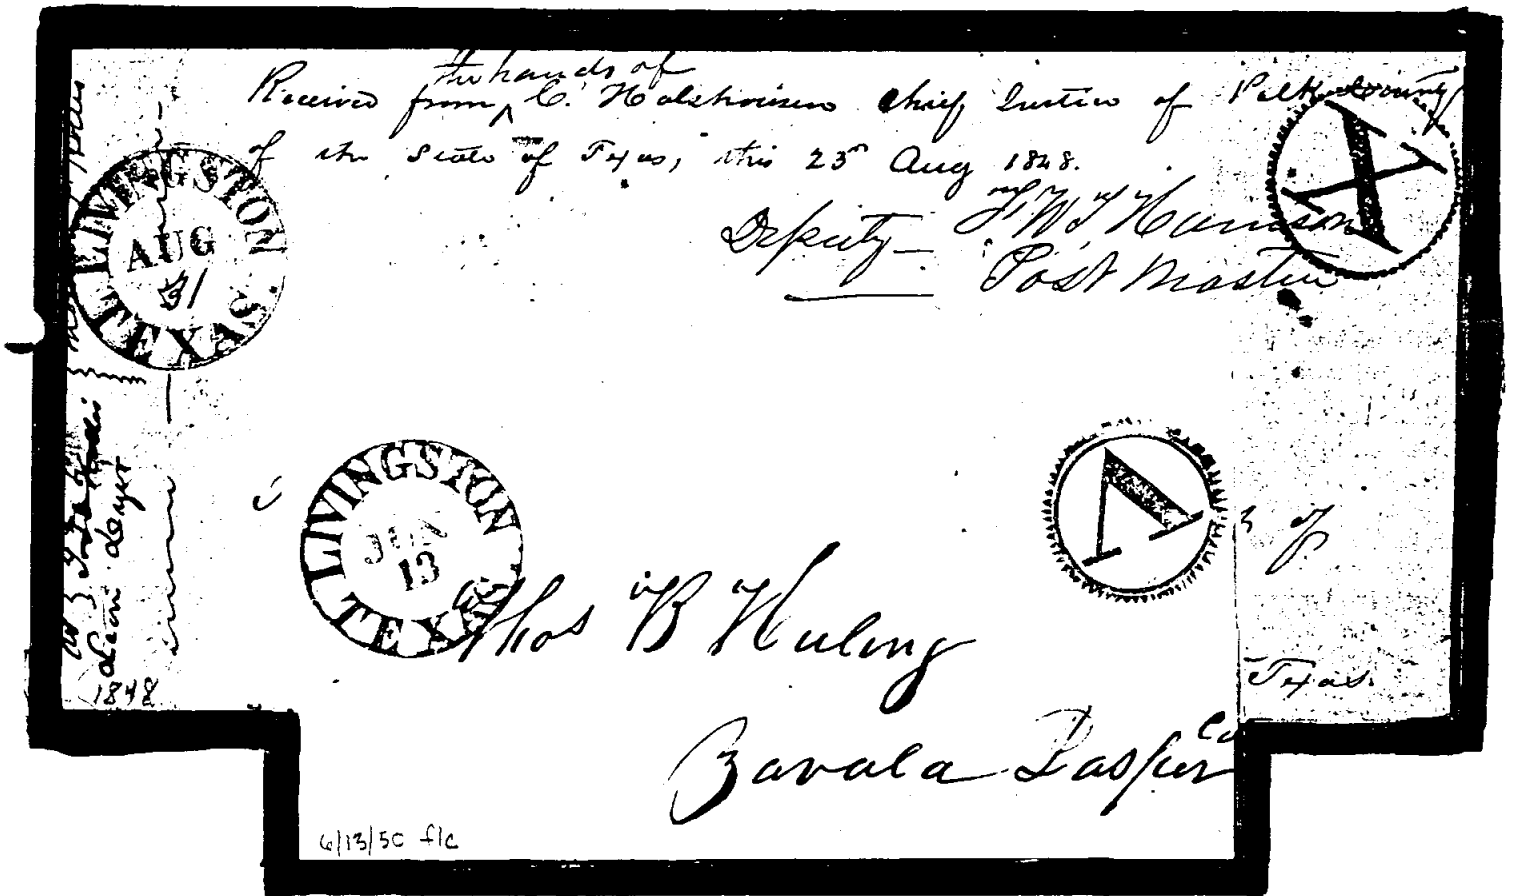 the hands of
Received from ^ C. Holshousen chief Justice of Polk County
of the State of Texas, this 23d Aug 1848.
Deputy — F W T Harrison
Post Master
X
LIVINGSTON TEXAS
AUG
31
1848
LIVINGSTON TEXAS
JUN
13
V
Thos B Huling
Zavala Jasper Co
Texas
6/13/50 f/c